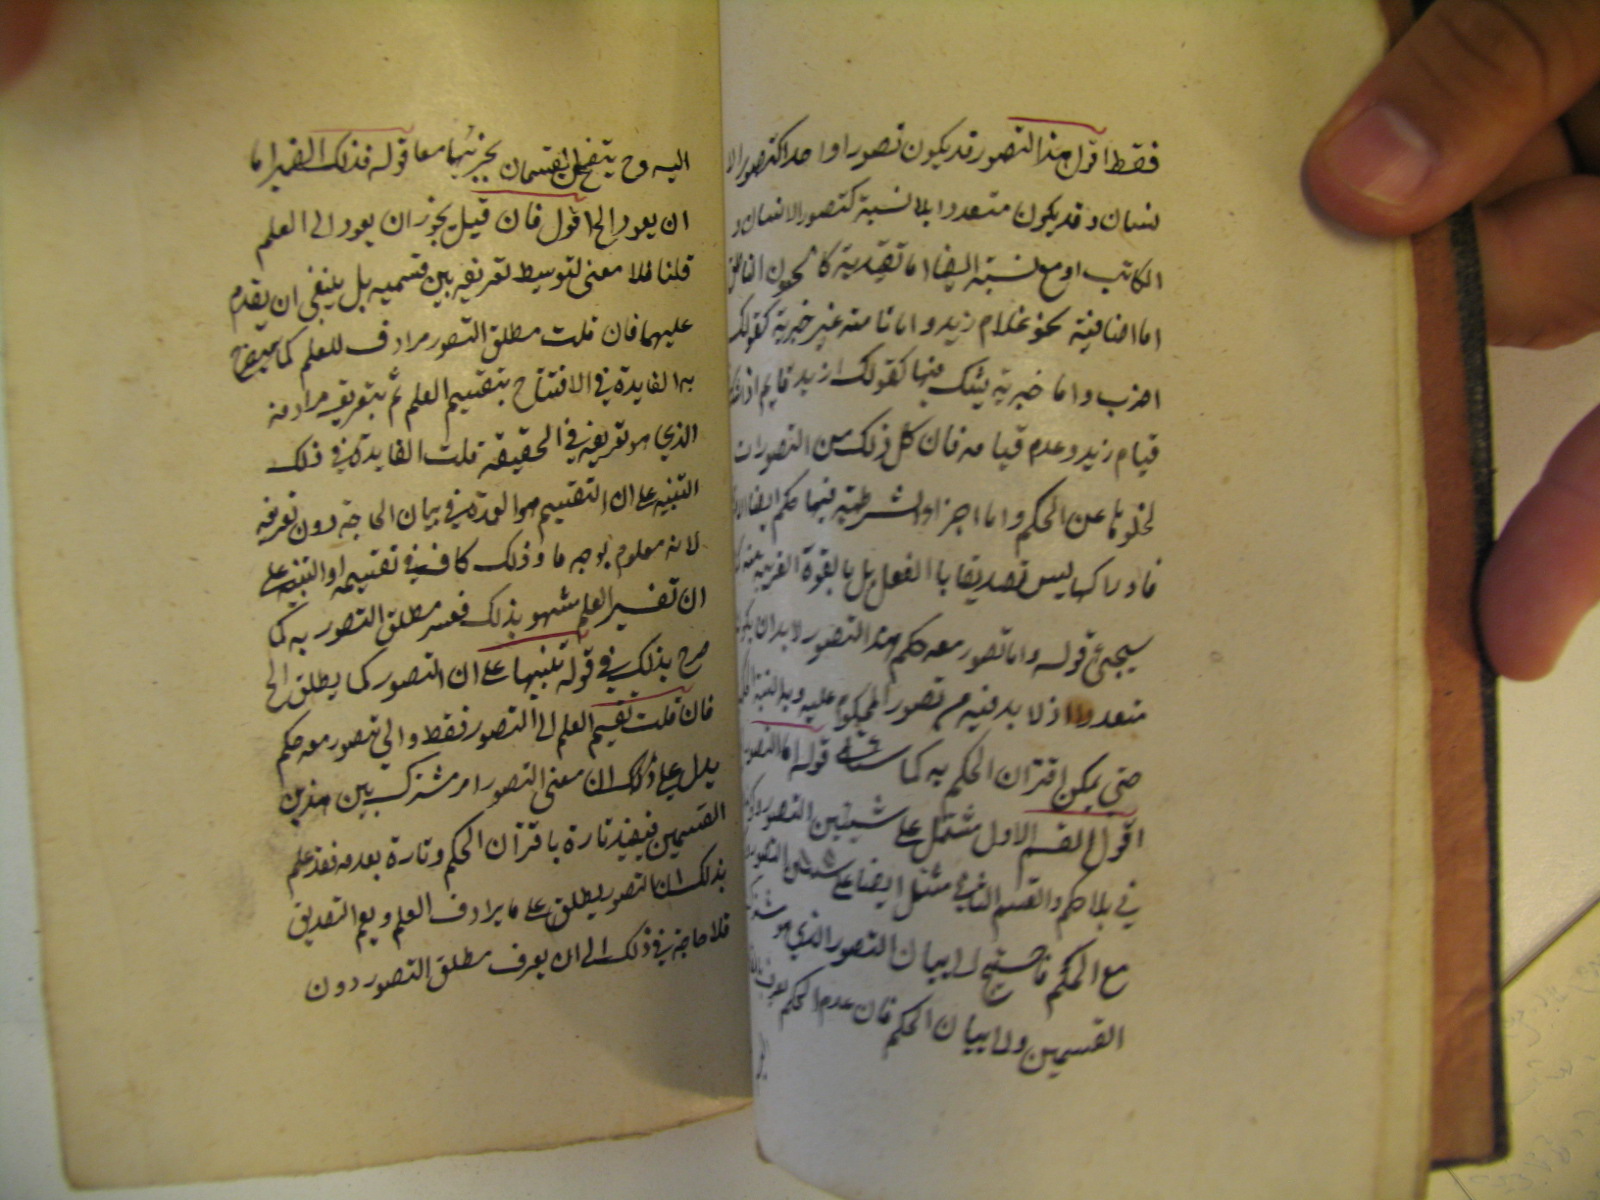 فقط اقول هذا التصور قد يكون تصورا واحدا كتصور الا
نسان وقد يكون متعددا بلا نسبة كتصور الانسان و
الكاتب او مع نسبة ايضا اما تقييدية كالحيوان الناطق
اما اضافية نحو غلام زيد واما تامة غير خبرية كقولك
اضرب واما خبرية يشك فيها كقولك ازيد قايم اذا
قيام زيد وعدم قيامه فان كل ذلك من التصورات
لخلوها عن الحكم واما اجزاء الشرطية فيها حكم ايضا
فادراكها ليس تصديقا بالفعل بل بالقوة القريبة منه
سيجئ قوله واما تصور معه حكم هذا التصور لابد ان يكون
متعددا اذ لا بد فيه من تصور المحكوم عليه وبه النسبة
حتى يمكن اقتران الحكم به كما قوله اما التصور
اقول القسم الاول مشتمل على شيئين التصور و
في بلا حكم والقسم الثاني مشتمل ايضا على شيئين التصور
مع الحكم فاحتيج الى بيان التصور الذي هو
القسمين والى بيان الحكم فان عدم الحكم يعرف
اليه وح يتضح القسمان بجزئيهما معا قوله فذلك الضمير اما
ان يعود الخ اقول فان قيل يجوز ان يعود الى العلم
قلنا فلا معنى لتوسيط تعريفه بين قسميه بل ينبغي ان يقدم
عليهما فان قلت مطلق التصور مرادف للعلم كما
به الفايدة في الافتتاح بتقسيم العلم ثم بتعريف مرادفه
الذي هو تعريفه في الحقيقة قلت الفايدة في ذلك
التنبيه على ان التقسيم هو العمدة في بيان الحاجة دون تعريفه
لانه معلوم بوجه ما وذلك كاف في تقسيمه او التنبيه على
ان تفسير العلم مشهور بذلك ففسر مطلق التصور به كما
صرح بذلك في قوله تنبيها على ان التصور كما يطلق الخ
فان قلت تقسيم العلم الى التصور فقط والى تصور معه حكم
يدل على ذلك ان معنى التصور امر مشترك بين هذين
القسمين فيقيد تارة باقتران الحكم وتارة بعدمه فقد علم
بذلك ان التصور يطلق على ما يرادف العلم ويعم التصديق
فلا حاجة في ذلك الى ان يعرف مطلق التصور دون